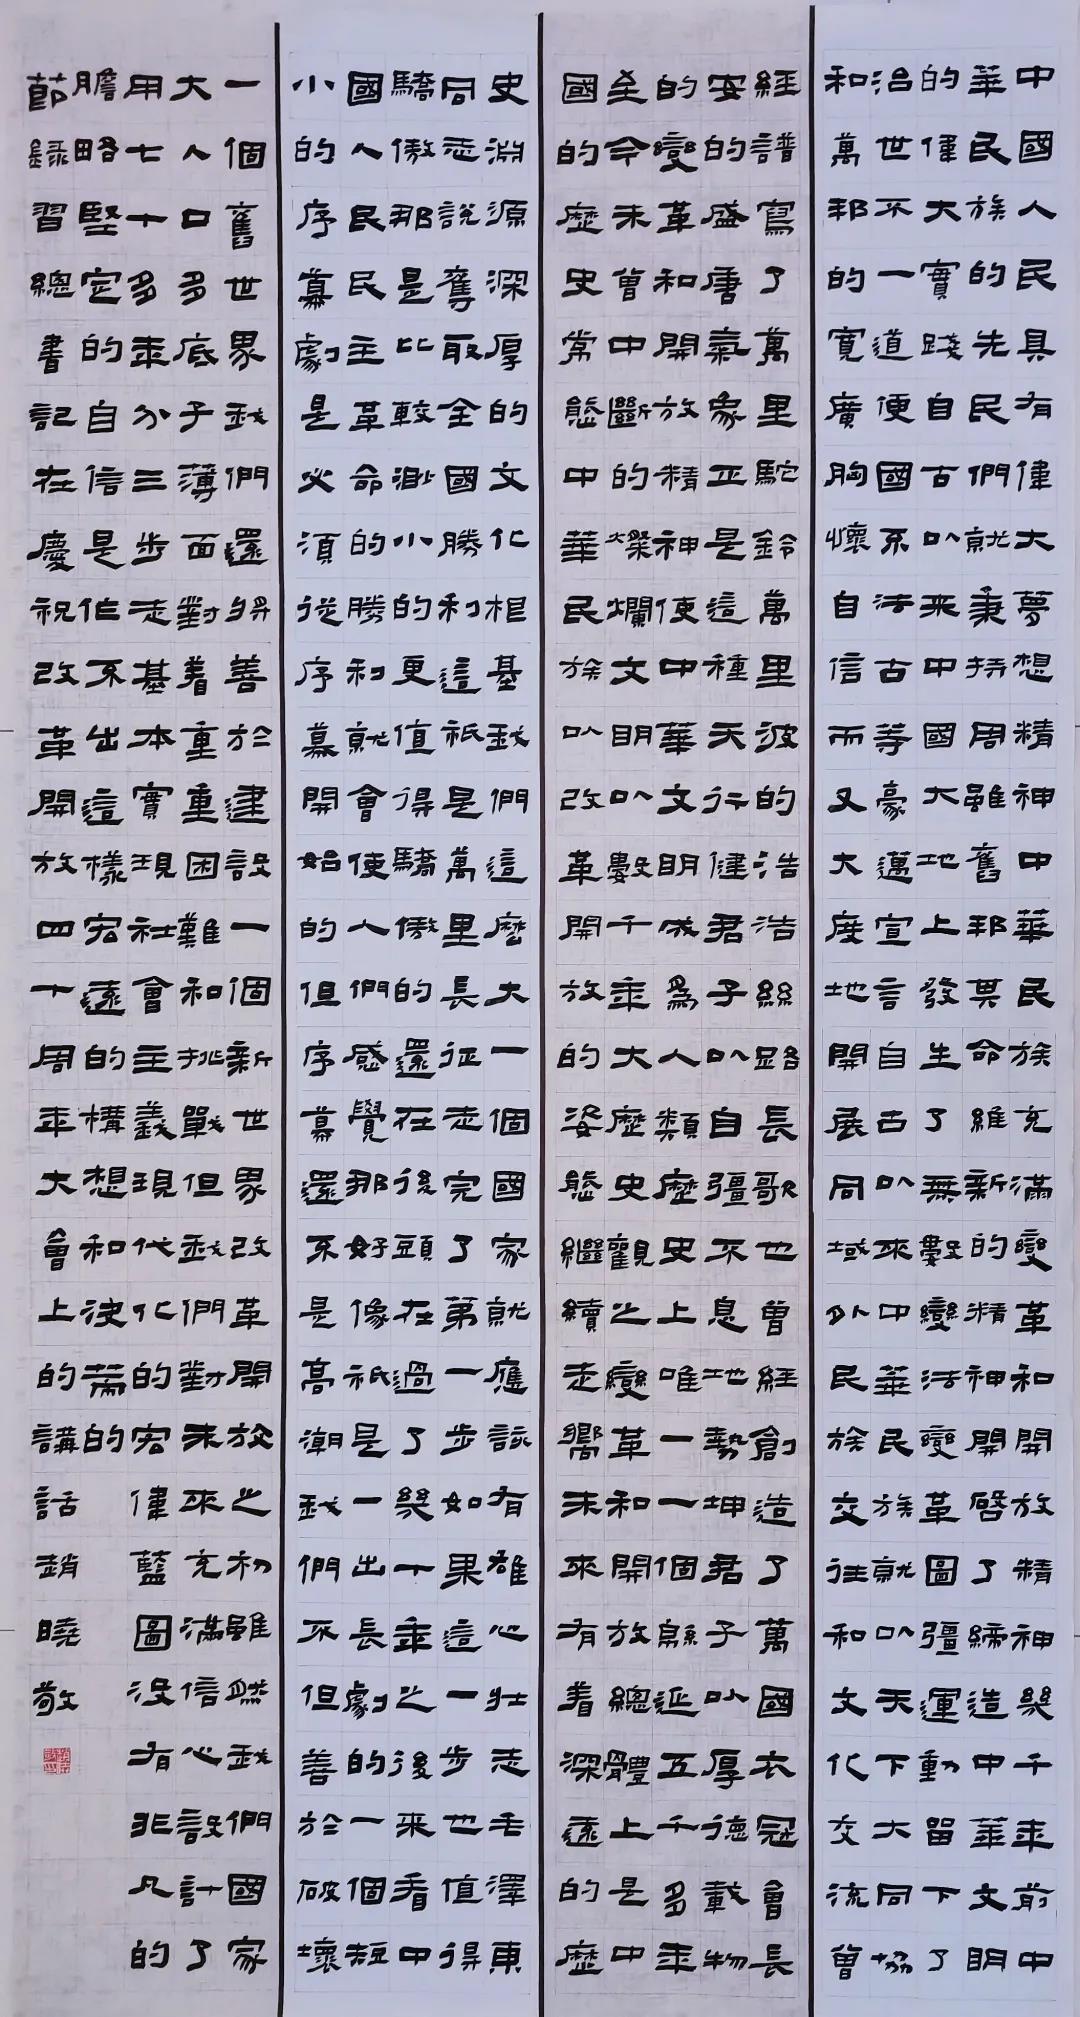 中國人民具有偉大夢想精神中華民族充滿變革和開放精神幾千年前中
華民族的先民們就秉持周雖舊邦其命維新的精神開啓了締造中華文明
的偉大實踐自古以來中國大地上發生了無數變法變革圖彊運動留下了
治世不一道便國不法古等豪邁宣言自古以來中華民族就以天下大同協
和萬邦的寬廣胸懷自信而又大度地開展同域外民族交往和文化交流曾
經譜寫了萬里駝鈴萬里波的浩浩絲路長歌也曾經創造了萬國衣冠會長
安的盛唐氣象正是這種天行健君子以自彊不息地勢坤君子以厚德載物
的變革和開放精神使中華文明成為人類歷史上唯一一個緜延五千多年
至今未曾中斷的燦爛文明以數千年大歷史觀之變革和開放總體上是中
國的歷史常態中華民族以改革開放的姿態繼續走嚮未來有着深遠的歷
史淵源深厚的文化根基我們這麼大一個國家就應該有雄心壯志毛澤東
同志說奪取全國勝利這祇是萬里長征走完了第一步如果這一步也值得
驕傲那是比較渺小的更值得驕傲的還在後頭在過了幾十年之後來看中
國人民民主革命的勝利就會使人們感覺那好像祇是一出長劇的一個短
小的序幕劇是必須從序幕開始的但序幕還不是高潮我們不但善於破壞
一個舊世界我們還將善於建設一個新世界改革開放之初雖然我們國家
大人口多底子薄面對着重重困難和挑戰但我們對未來充滿信心設計了
用七十多年分三步走基本實現社會主義現代化的宏偉藍圖沒有非凡的
膽略堅定的自信是作不出這樣宏遠的構想和決策的
節錄習總書記在慶祝改革開放四十周年大會上的講話趙曉敬